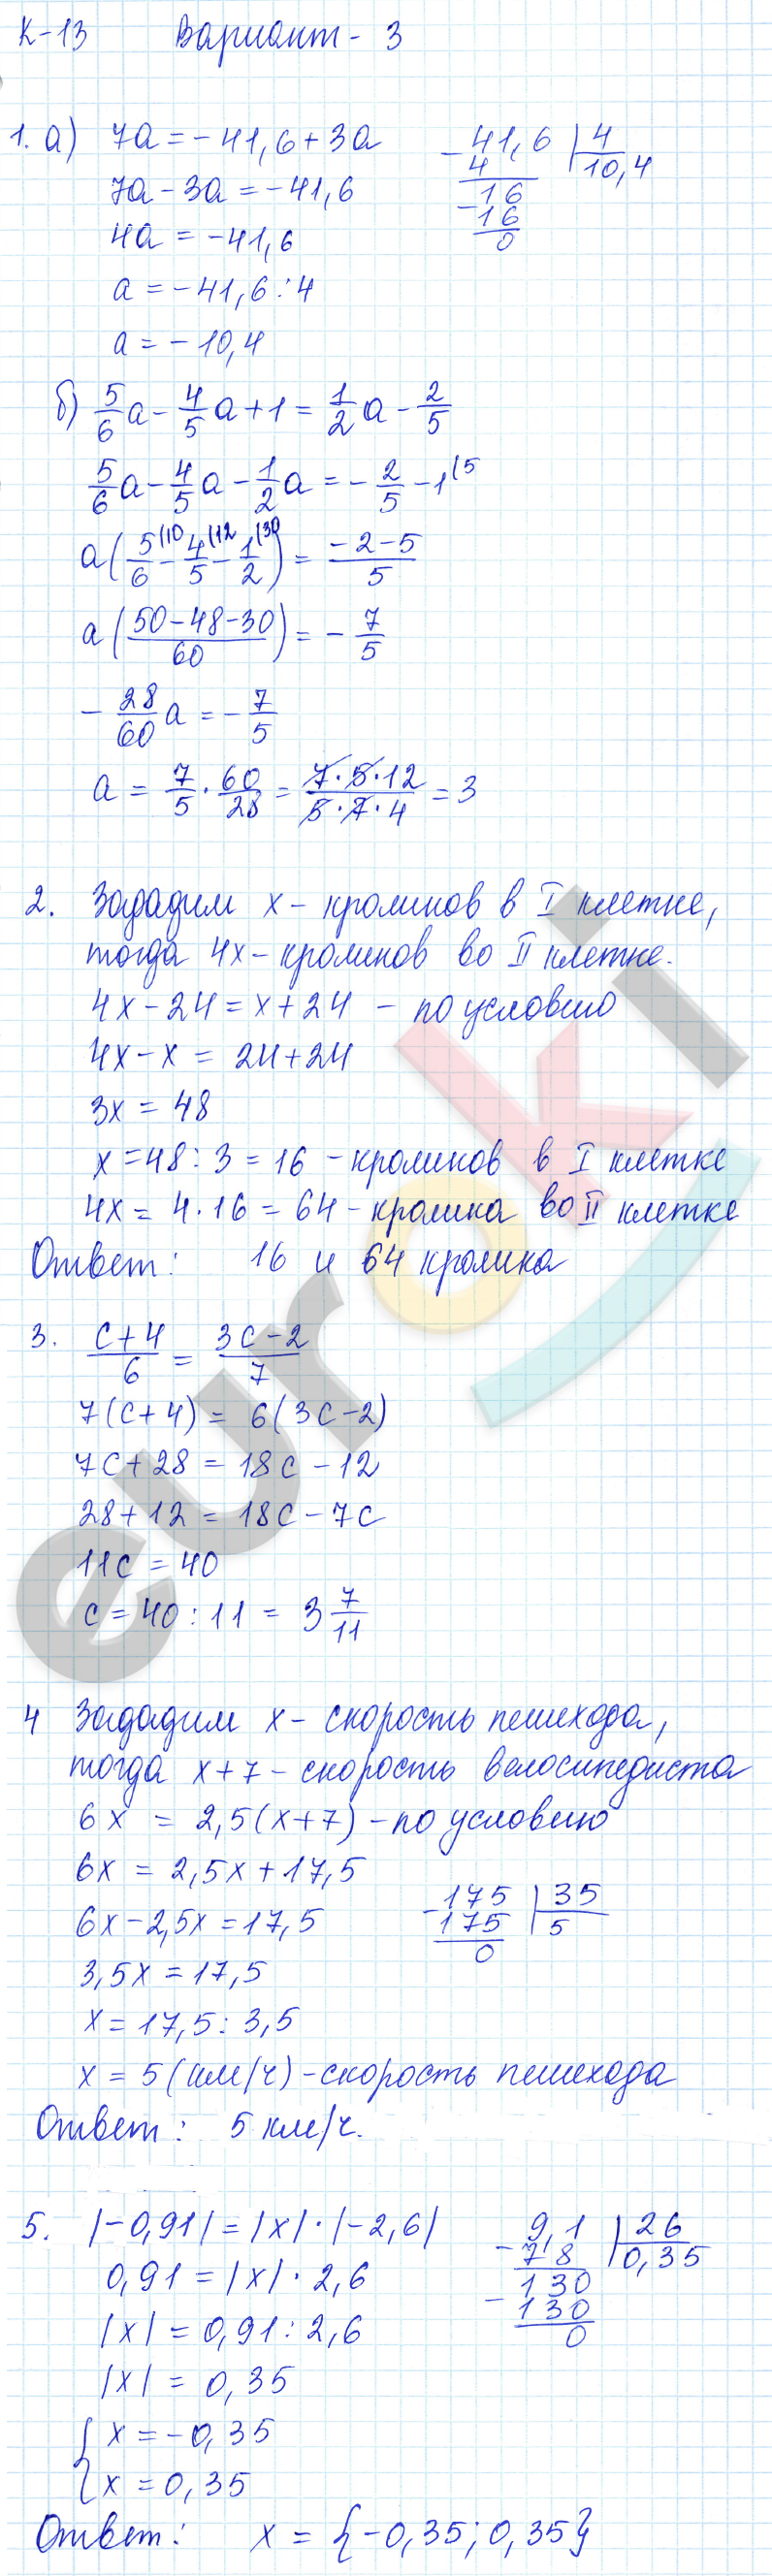 К-13 Вариант - 3
1. а) 7a = - 41,6 + 3a
7a - 3a = - 41,6
4a = - 41,6
a = - 41,6 : 4
a = - 10,4
- 41,6 | 4
4 10,4
- 16
16
0
б) 5/6 a - 4/5 a + 1 = 1/2 a - 2/5
5/6 a - 4/5 a - 1/2 a = - 2/5 - 1 (5
a (5/6 (10 - 4/5 (12 - 1/2 (30) = (-2-5)/5
a ((50-48-30)/60) = - 7/5
- 28/60 a = - 7/5
a = 7/5 · 60/28 = (7·5·12)/(5·7·4) = 3
2. Зададим x - кроликов в I клетке,
тогда 4x - кроликов во II клетке.
4x - 24 = x + 24 - по условию
4x - x = 24 + 24
3x = 48
x = 48 : 3 = 16 - кроликов в I клетке
4x = 4 · 16 = 64 - кролика во II клетке
Ответ: 16 и 64 кролика
3. (c+4)/6 = (3c-2)/7
7(c+4) = 6(3c-2)
7c + 28 = 18c - 12
28 + 12 = 18c - 7c
11c = 40
c = 40 : 11 = 3 7/11
4 Зададим x - скорость пешехода,
тогда x + 7 - скорость велосипедиста
6x = 2,5(x+7) - по условию
6x = 2,5x + 17,5
6x - 2,5x = 17,5
3,5x = 17,5
x = 17,5 : 3,5
x = 5 (км/ч) - скорость пешехода
- 175 | 35
175 5
0
Ответ: 5 км/ч.
5. |-0,91| = |x| · |-2,6|
0,91 = |x| · 2,6
|x| = 0,91 : 2,6
|x| = 0,35
{ x = -0,35
{ x = 0,35
- 9,1 | 26
78 0,35
- 130
130
0
Ответ: x = {-0,35; 0,35}
euroki